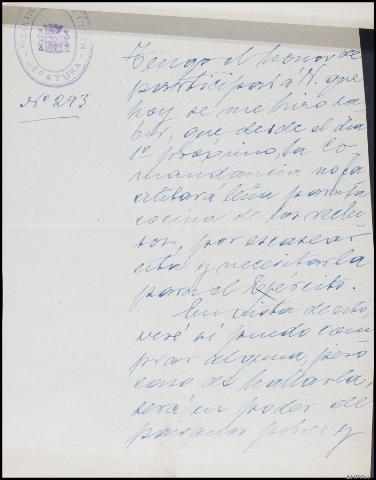 JEFATURA
Nº 293
Tengo el honor de
participar á V. que
hoy se me hizo sa
ber, que desde el dia
1º próximo, la Co
mandancia no fa
cilitará leña para la
cocina de los reclu
sos, por escasear
esta y necesitarla
para el Ejército.
En vista de esto,
veré si puedo com
prar alguna, pero
caso de hallarla,
será en poder de
paisanos pobres y